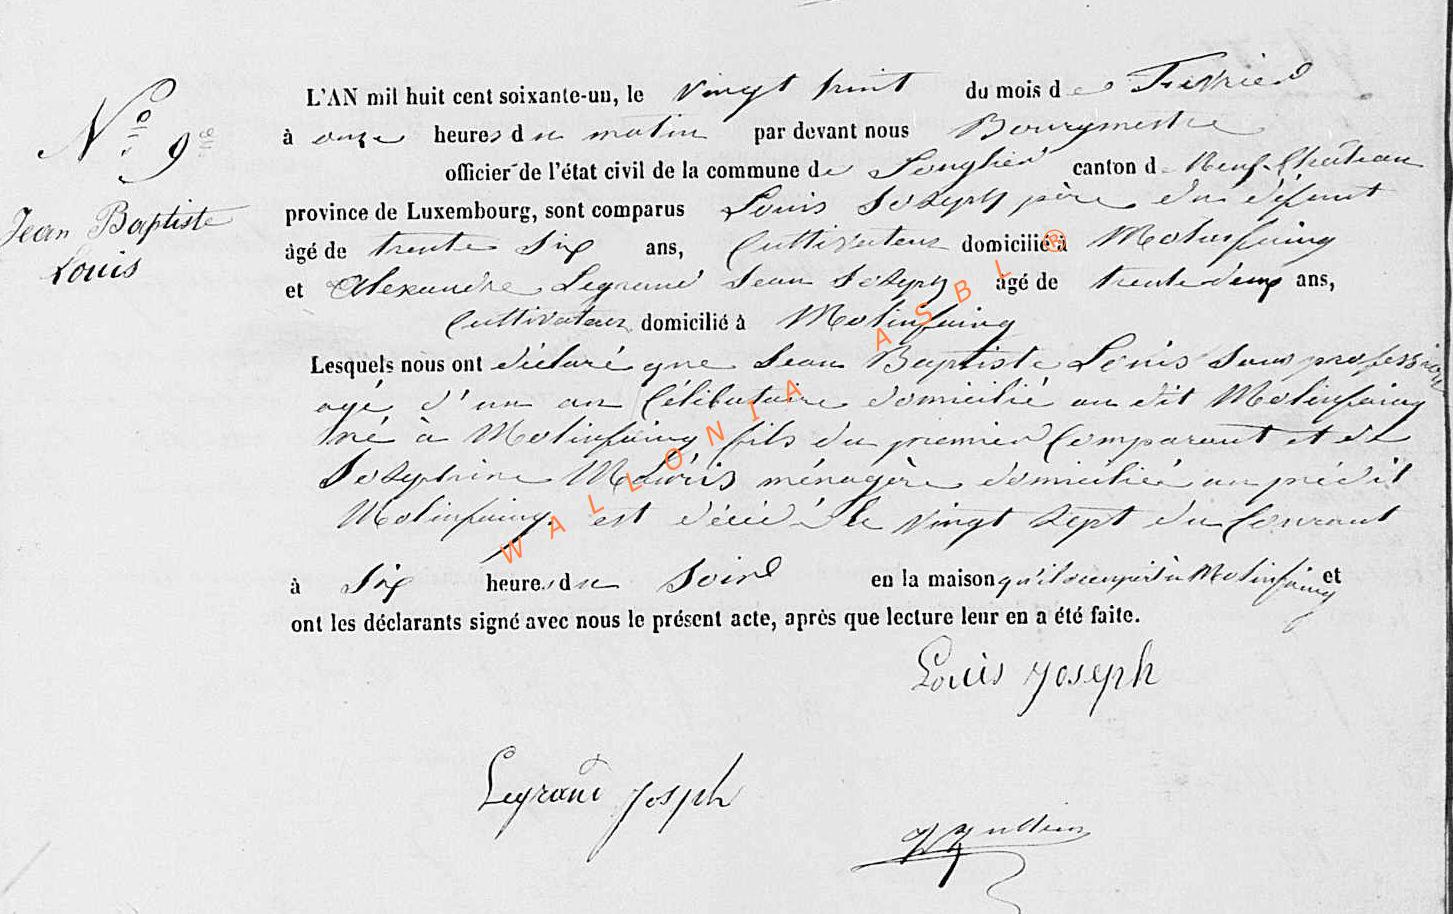 No 9
Jean Baptiste
Louis
L'AN mil huit cent soixante-un, le vingt huit du mois de Fevrier
à onze heures du matin par devant nous Bourgmestre
officier de l'état civil de la commune de Longlier canton de Neuf-Château
province de Luxembourg, sont comparus Louis Joseph père du défunt
âgé de trente six ans, Cultivateur domicilié à Molinfaing
et Alexandre Legrand Jean Joseph âgé de trente deux ans,
Cultivateur domicilié à Molinfaing
Lesquels nous ont déclaré que Jean Baptiste Louis Sans profession
agé d'un an Célibataire domicilié au dit Molinfaing
né à Molinfaing fils du premier Comparant et de
Josephine ménagère domiciliée au prédit
Molinfaing est décédé le vingt sept du Courant
à Six heures du Soir en la maison qu'il occupait à Molinfaing et
ont les déclarants signé avec nous le présent acte, après que lecture leur en a été faite.
Louis Joseph
Legrand Joseph
WALLONIA ASBL ®